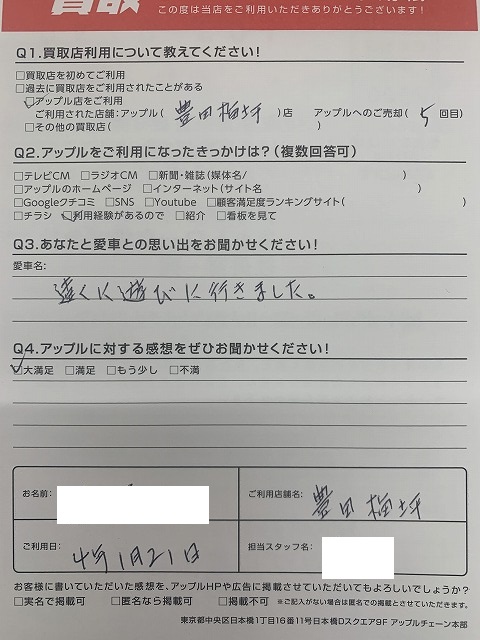 買取
この度は当店をご利用いただきありがとうございます!
Q1.買取店利用について教えてください!
□買取店を初めてご利用
□過去に買取店をご利用されたことがある
☑アップル店をご利用
ご利用された店舗:アップル( 豊田梅坪 )店 アップルへのご売却( 5 回目)
□その他の買取店( )
Q2.アップルをご利用になったきっかけは?(複数回答可)
□テレビCM □ラジオCM □新聞・雑誌(媒体名/ )
□アップルのホームページ □インターネット(サイト名 )
□Googleクチコミ □SNS □Youtube □顧客満足度ランキングサイト( )
□チラシ ☑利用経験があるので □紹介 □看板を見て
Q3.あなたと愛車との思い出をお聞かせください!
愛車名:
遠くに遊びに行きました。
Q4.アップルに対する感想をぜひお聞かせください!
☑大満足 □満足 □もう少し □不満
お名前: ご利用店舗名: 豊田梅坪
ご利用日: 4年1月21日 担当スタッフ名:
お客様に書いていただいた感想を、アップルHPや広告に掲載させていただいてもよろしいでしょうか?
□実名で掲載可 □匿名なら掲載可 □掲載不可 ※ご記入がない場合は匿名での掲載とさせていただきます。
東京都中央区日本橋1丁目16番11号日本橋Dスクエア9F アップルチェーン本部